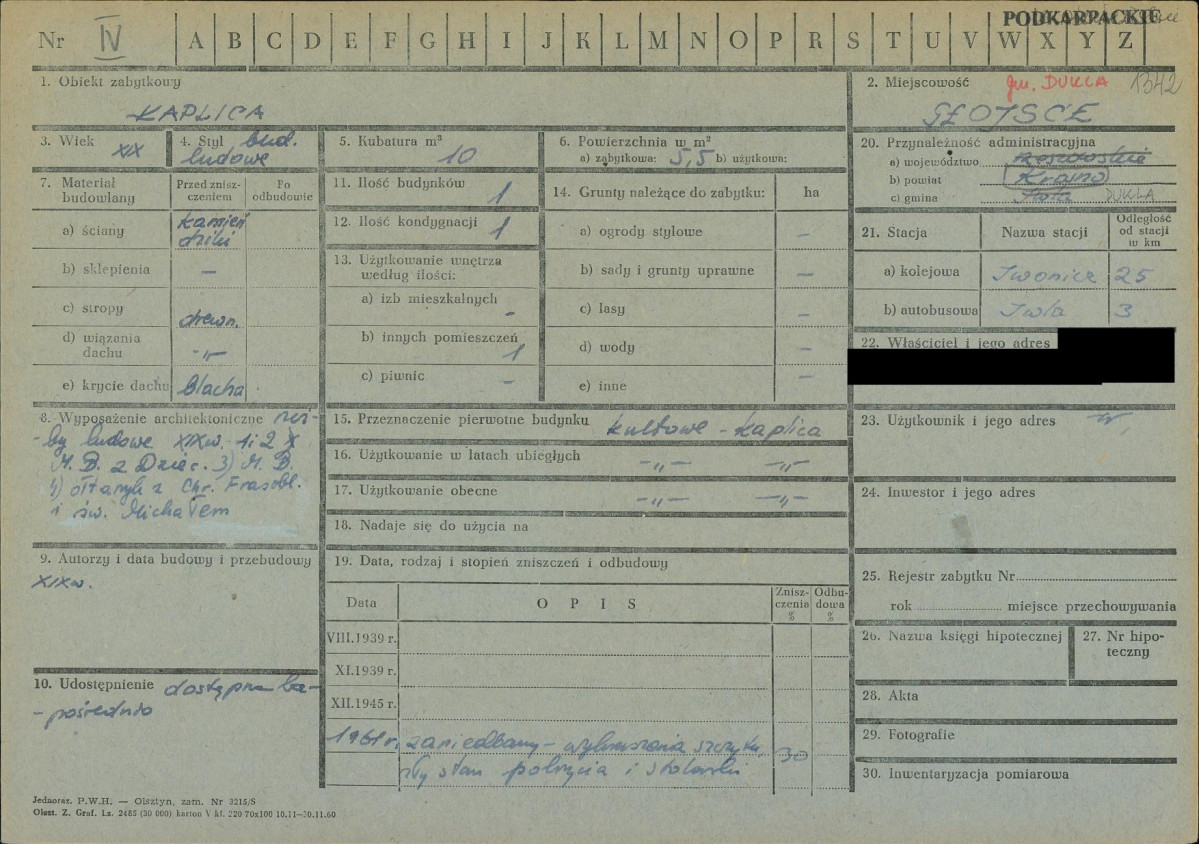 PODKARPACKIE
Nr IV A B C D E F G H I J K L M N O P R S T U V W X Y Z
1. Obiekt zabytkowy
KAPLICA
2. Miejscowość gm. DUKLA 1342
GŁOJSCE
3. Wiek XIX
4. Styl bud. ludowe
5. Kubatura m³ 10
6. Powierzchnia w m²
a) zabytkowa: 5,5 b) użytkowa:
20. Przynależność administracyjna
a) województwo rzeszowskie
b) powiat Krosno
c) gmina DUKLA
7. Materiał budowlany
Przed zniszczeniem
Po odbudowie
a) ściany kamień dziki
b) sklepienia —
c) stropy drewn.
d) wiązania dachu -„-
e) krycie dachu blacha
11. Ilość budynków 1
12. Ilość kondygnacji 1
13. Użytkowanie wnętrza według ilości:
a) izb mieszkalnych -
b) innych pomieszczeń 1
c) piwnic —
14. Grunty należące do zabytku: ha
a) ogrody stylowe —
b) sady i grunty uprawne —
c) lasy —
d) wody —
e) inne —
21. Stacja
Nazwa stacji
Odległość od stacji w km
a) kolejowa Iwonicz 25
b) autobusowa Iwla 3
22. Właściciel i jego adres
8. Wyposażenie architektoniczne rzeź-
-by ludowe XIX w. 1 i 2
M. B. z Dziec. 3) M. B.
4) ołtarzyk z Chr. Frasobl.
i św. Michałem
15. Przeznaczenie pierwotne budynku kultowe - kaplica
16. Użytkowanie w latach ubiegłych -„- -„-
17. Użytkowanie obecne -„- -„-
18. Nadaje się do użycia na
23. Użytkownik i jego adres
24. Inwestor i jego adres
9. Autorzy i data budowy i przebudowy
XIX w.
19. Data, rodzaj i stopień zniszczeń i odbudowy
Data
OPIS
Zniszczenia %
Odbudowa %
VIII.1939 r.
XI.1939 r.
XII.1945 r.
1961 r. zaniedbany - wykruszenia szczytu, 30
zły stan pokrycia i stolarki
25. Rejestr zabytku Nr
rok miejsce przechowywania
26. Nazwa księgi hipotecznej
27. Nr hipoteczny
10. Udostępnienie dostępna bez-
-pośrednio
28. Akta
29. Fotografie
30. Inwentaryzacja pomiarowa
Jednoraz. P.W.H. — Olsztyn, zam. Nr 3215/S
Olszt. Z. Graf. Lz. 2485 (30 000) karton V kl. 220 70x100 10.11—30.11.60